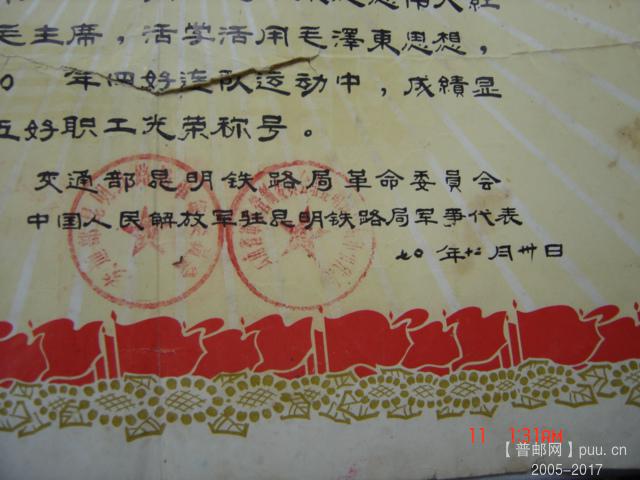 毛主席，活学活用毛澤東思想，
0 年四好连队运动中，成績显
五好职工光荣称号。
交通部昆明铁路局革命委員会
中国人民解放军驻昆明铁路局军事代表
七0 年十二月卅日
11 1:31AM
【普邮网】puu.cn
2005-2017